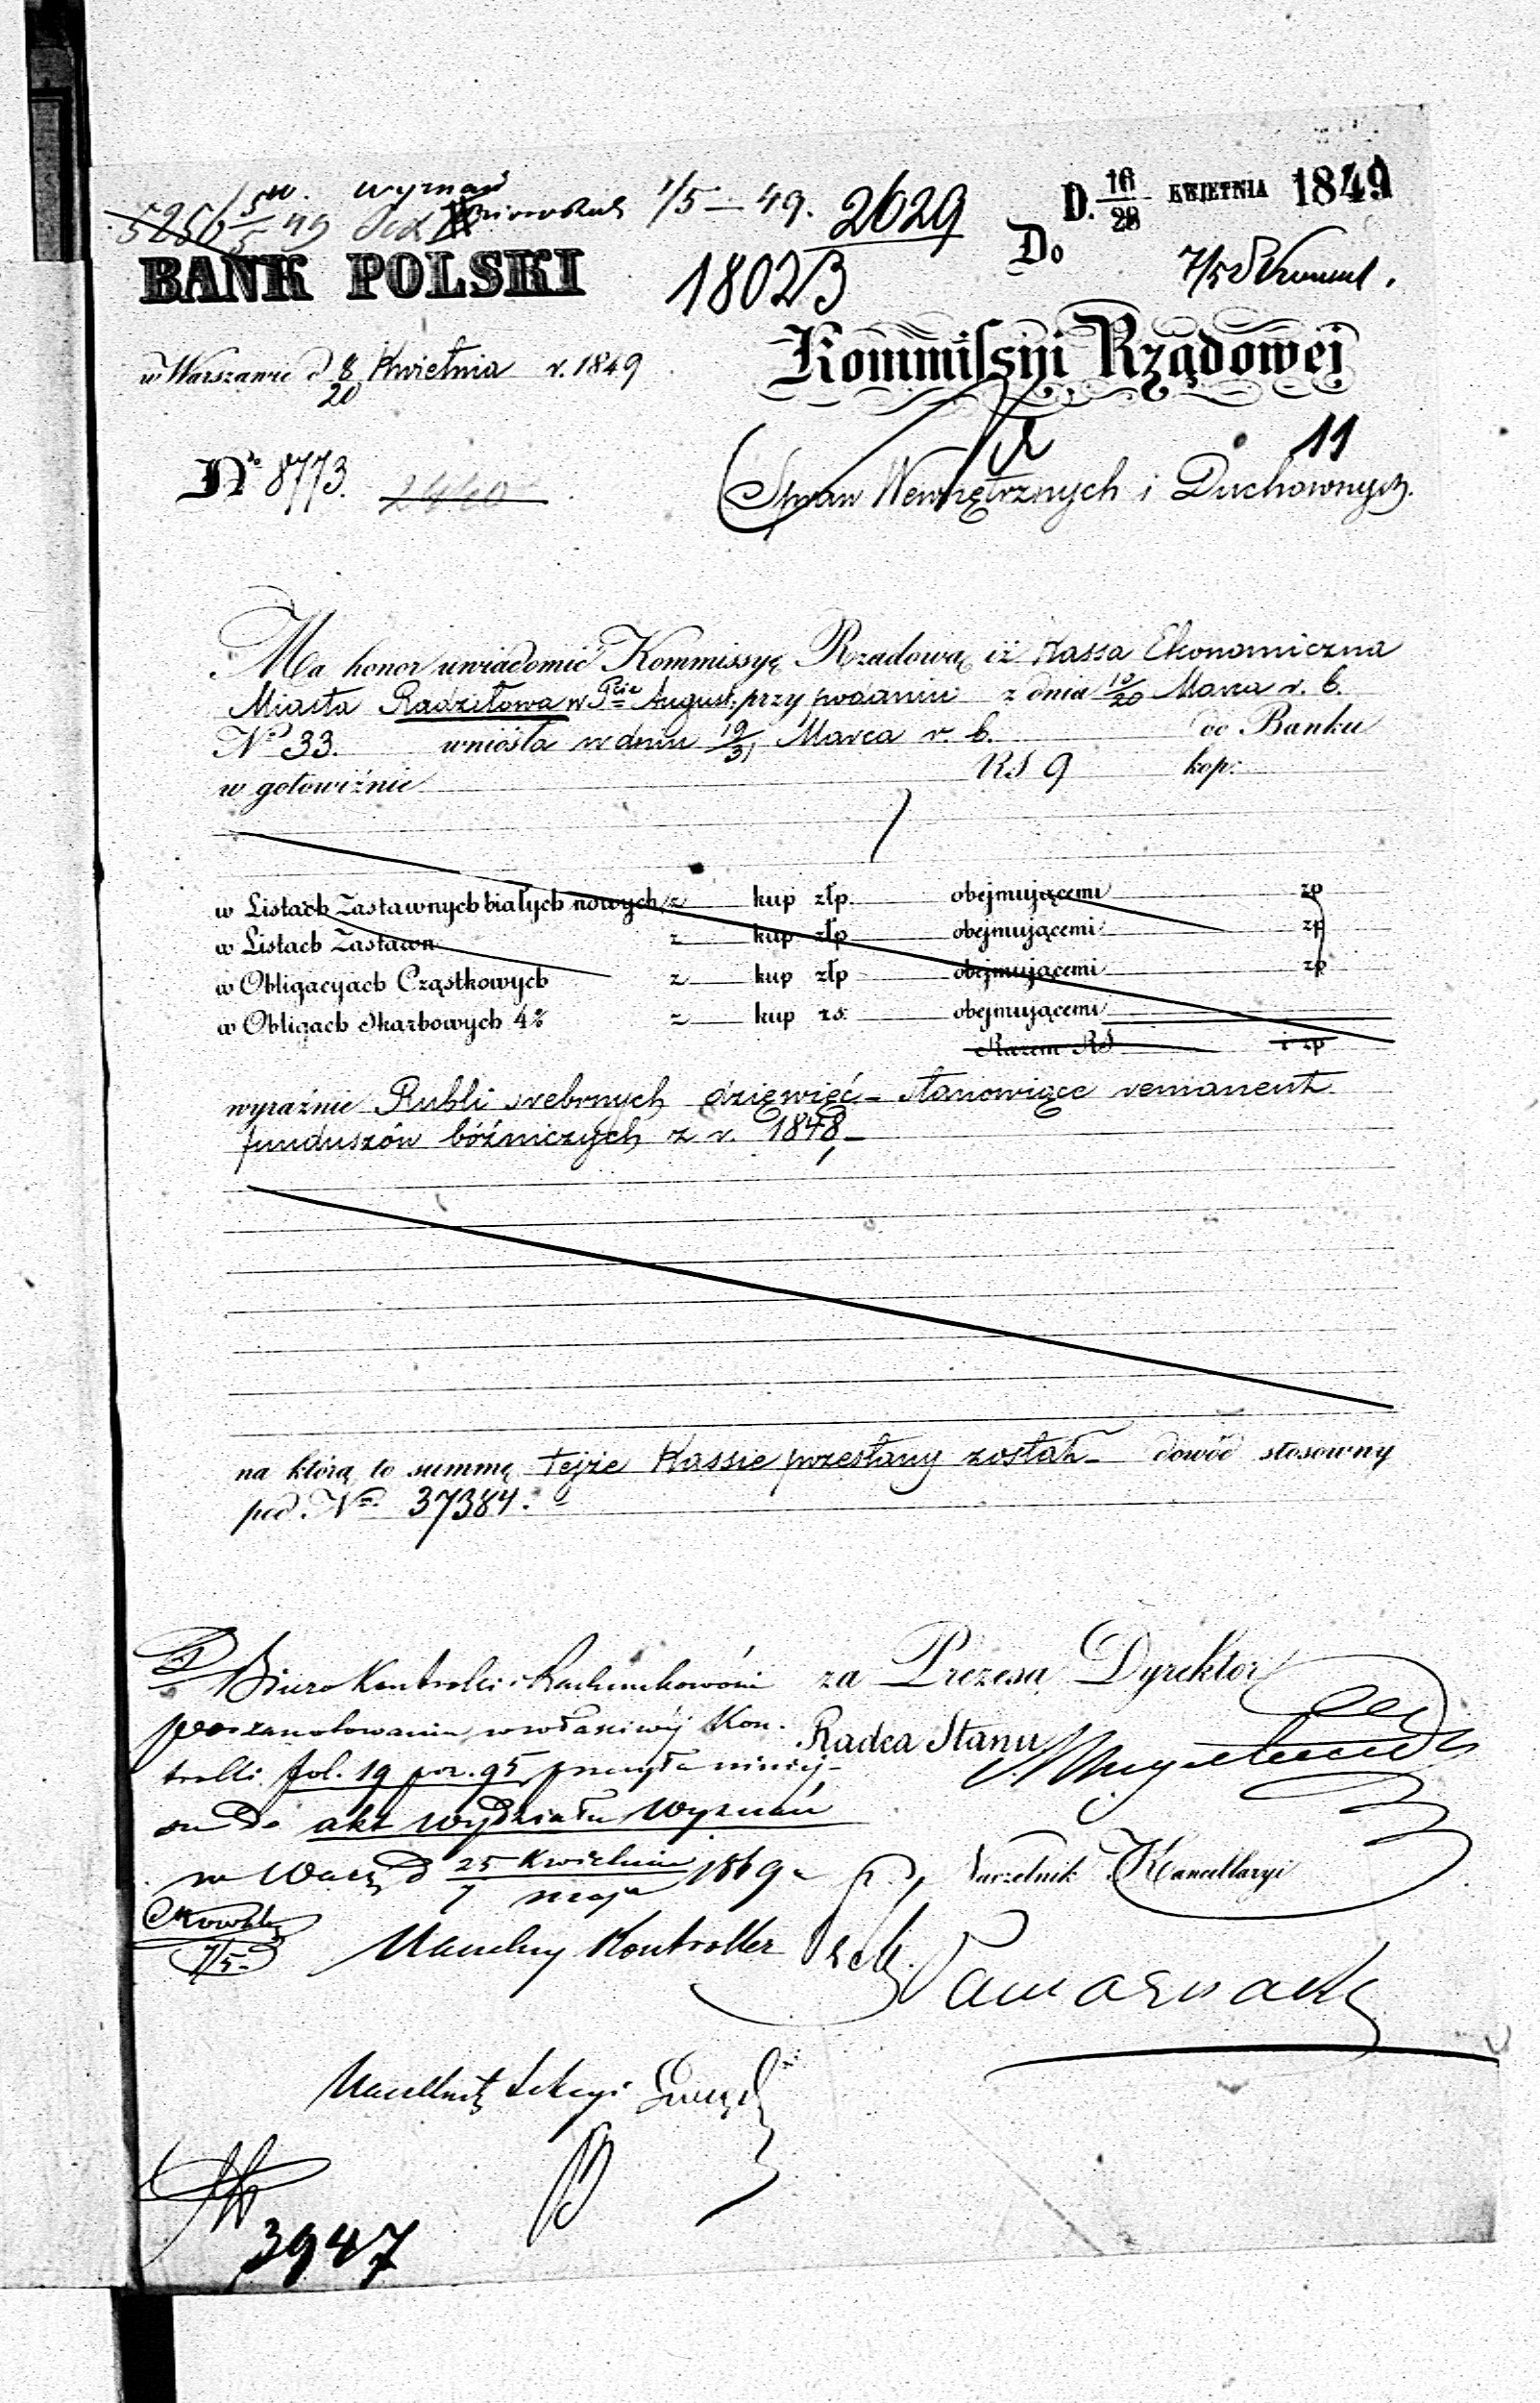 5256 5/5 49 wyznań 1/5 – 49. 2629 D. 16/28 KWIETNIA 1849
BANK POLSKI 1802 B Do 7/5
w Warszawie d 8/20 Kwietnia r. 1849 Kommissyi Rządowej
11
No 8773. 2440 Spraw Wewnętrznych i Duchownych.
Ma honor uwiadomić Kommissyę Rządową iż Kassa Ekonomiczna
Miasta Radziłowa w Pcie August. przy podaniu z dnia Marca r. b.
No 33. wniosła w dniu 19/31 Marca r. b. do Banku
w gotowiźnie RS 9 kop:
w Listach Zastawnych białych nowych z kup złp. obejmującemi zp
w Listach Zastawn z kup złp obejmującemi zp
w Obligacyach Cząstkowych z kup złp obejmującemi zp
w Obligach Skarbowych 4% z kup rs. obejmującemi
Razem RS i zp
wyraźnie Rubli srebrnych dziewięć – stanowiące remanent
funduszów bóżniczych z r. 1848, –
na którą to summę tejże Kassie przesłany został – dowód stosowny
pod No 37384.
Biuro Kontrolli i Rachunkowości za Prezesa, Dyrektor
po zanotowaniu w właściwéj Kon- Radca Stanu
trolli fol. 19 poz. 95 przesyła niniej-
sze do akt Wydziału Wyznań
w Warsz d 25 Kwietnia/7 maja 1849 r p.o. Naczelnik Kancellaryi
7/5 Naczelny Kontroller
Naczelnik Sekcyi
3947